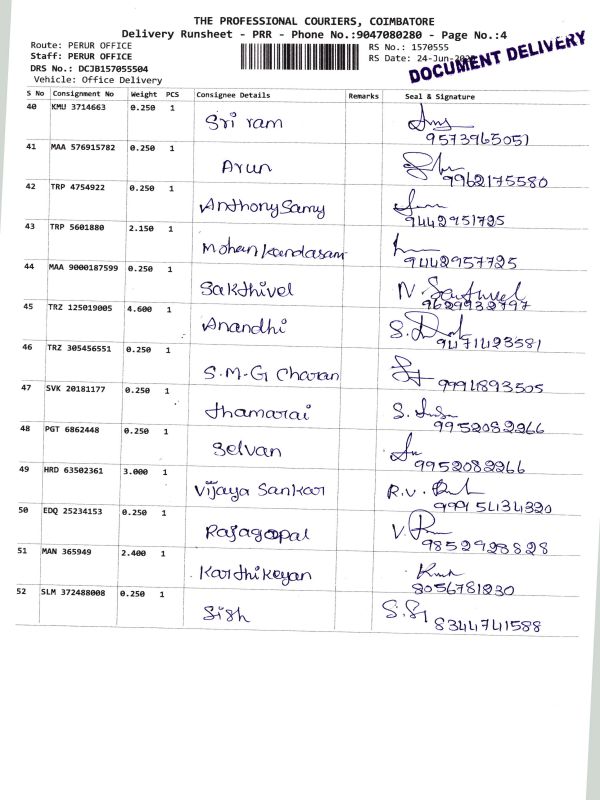 THE PROFESSIONAL COURIERS, COIMBATORE
Delivery Runsheet - PRR - Phone No.:9047080280 - Page No.:4
Route: PERUR OFFICE
RS No.: 1570555
Staff: PERUR OFFICE
RS Date: 24-Jun-
DOCUMENT DELIVERY
DRS No.: DCJB157055504
Vehicle: Office Delivery
S No Consignment No Weight PCS Consignee Details Remarks Seal & Signature
40 KMU 3714663 0.250 1 Sri ram
9573965051
41 MAA 576915782 0.250 1 Arun
9962175580
42 TRP 4754922 0.250 1 Anthony Samy
9442951725
43 TRP 5601880 2.150 1 Mohan Kandasam
9442957725
44 MAA 9000187599 0.250 1 Sakthivel N.
9629932797
45 TRZ 125019005 4.600 1 Anandhi S.
9471423581
46 TRZ 305456551 0.250 1 S.M-G Charan
9991893505
47 SVK 20181177 0.250 1 thamarai S.
9952082266
48 PGT 6862448 0.250 1 Selvan
9952082266
49 HRD 63502361 3.000 1 Vijaya Sankar R.V.
50 EDQ 25234153 0.250 1 Rajagopal V.
9852928828
51 MAN 365949 2.400 1 Karthikeyan
8056781230
52 SLM 372488008 0.250 1 Sish
8344741588